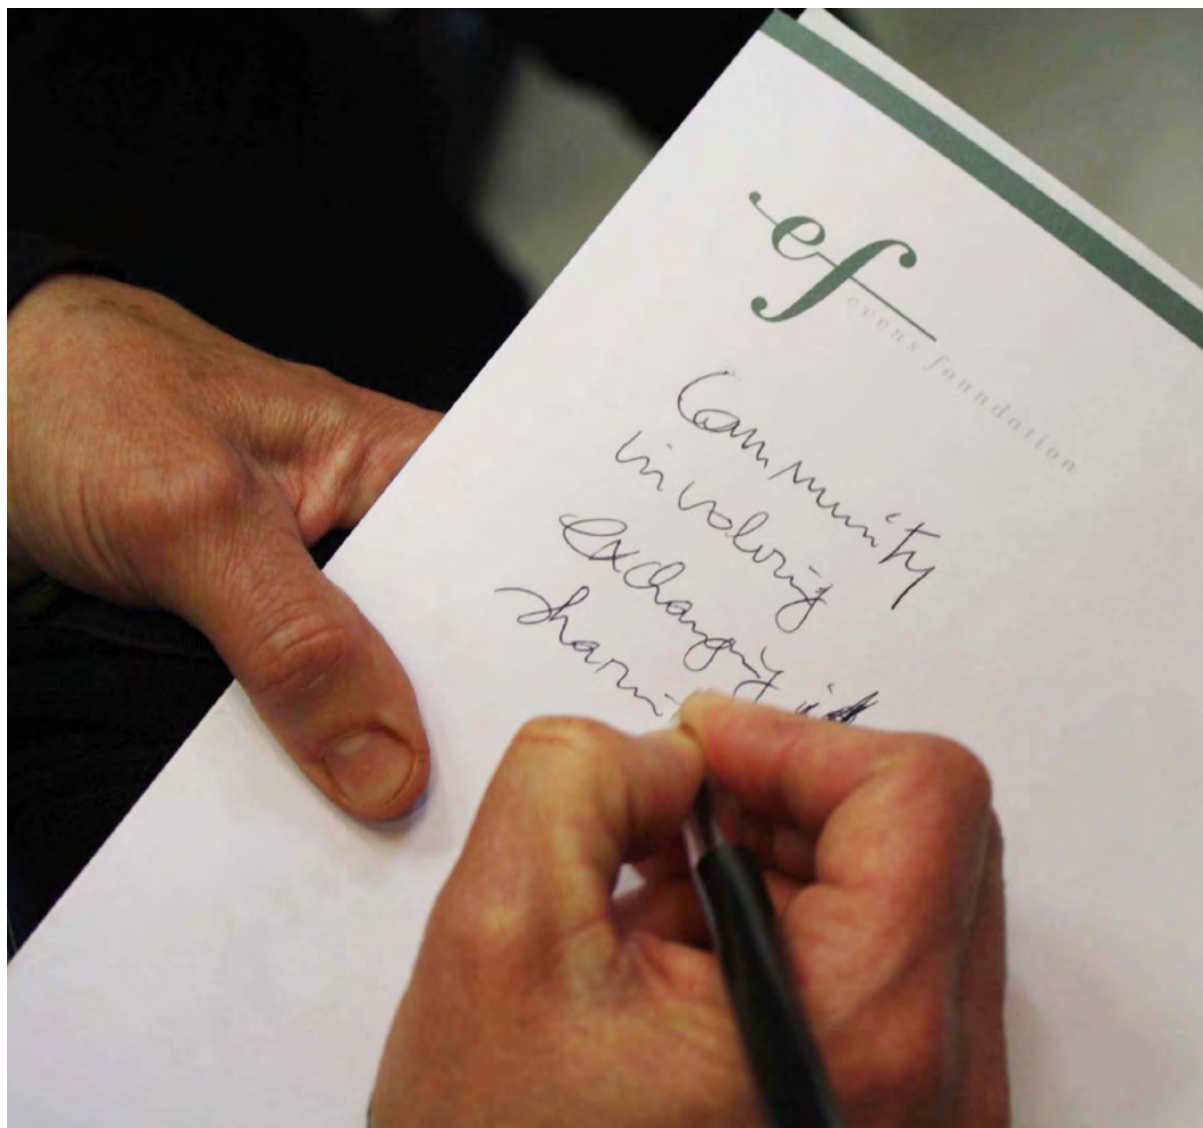 ef
evens foundation
Community
involving
exchanging